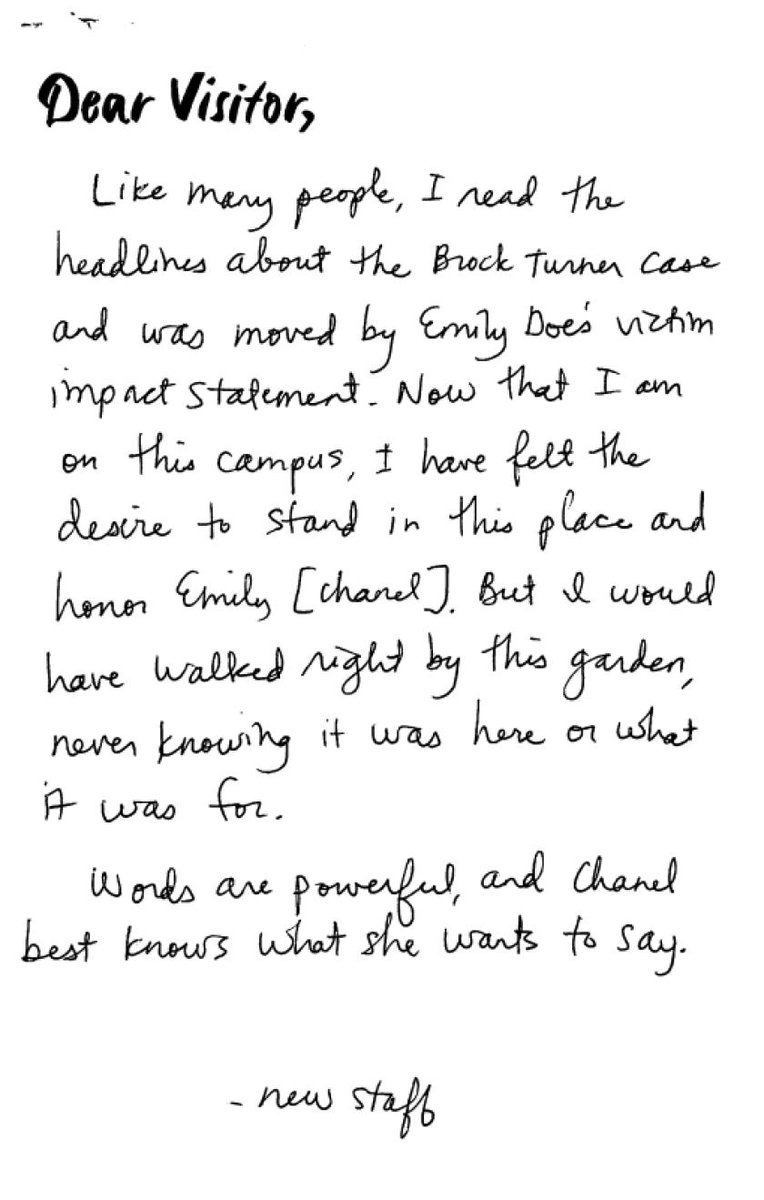 Dear Visitor,
Like many people, I read the
headlines about the Brock Turner case
and was moved by Emily Doe's victim
impact statement. Now that I am
on this campus, I have felt the
desire to stand in this place and
honor Emily [Chanel]. But I would
have walked right by this garden,
never knowing it was here or what
it was for.
Words are powerful, and Chanel
best knows what she wants to say.
- new staff